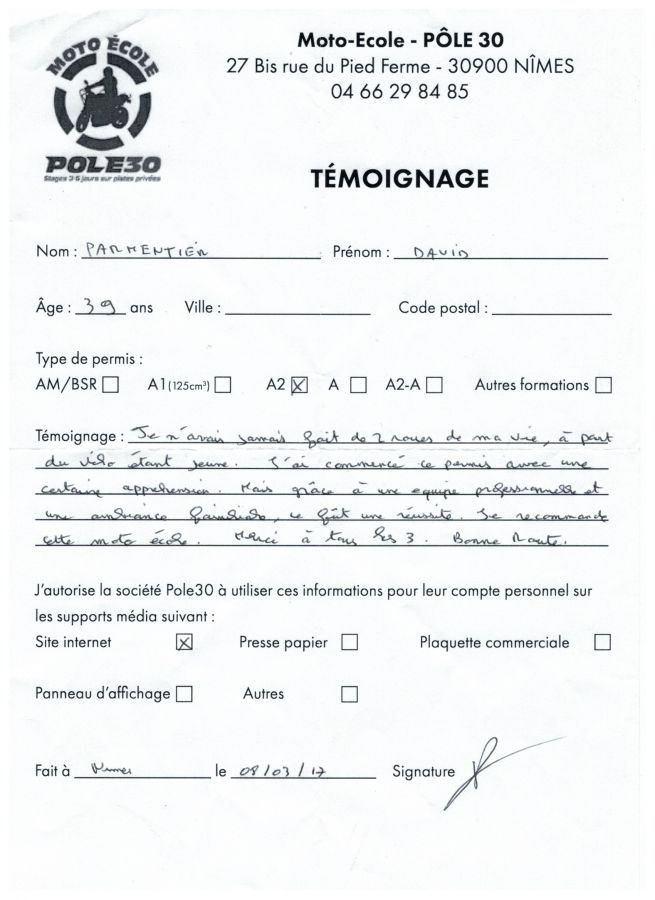 MOTO ÉCOLE
POLE30
Stages 3-5 jours sur pistes privées
Moto-Ecole - PÔLE 30
27 Bis rue du Pied Ferme - 30900 NÎMES
04 66 29 84 85
TÉMOIGNAGE
Nom : PARMENTIER Prénom : DAVID
Âge : 39 ans Ville : Code postal :
Type de permis :
AM/BSR A1 (125cm³) A2 A A2-A Autres formations
Témoignage : Je n'avais jamais fait de 2 roues de ma vie, à part
du vélo étant jeune. J'ai commencé ce permis avec une
certaine appréhension. Mais grâce à une equipe professionnelle et
une ambiance familiale, ce fût une réussite. Je recommande
cette moto école. Merci à tous les 3. Bonne Route.
J'autorise la société Pole30 à utiliser ces informations pour leur compte personnel sur
les supports média suivant :
Site internet Presse papier Plaquette commerciale
Panneau d'affichage Autres
Fait à Nimes le 08/03/17 Signature